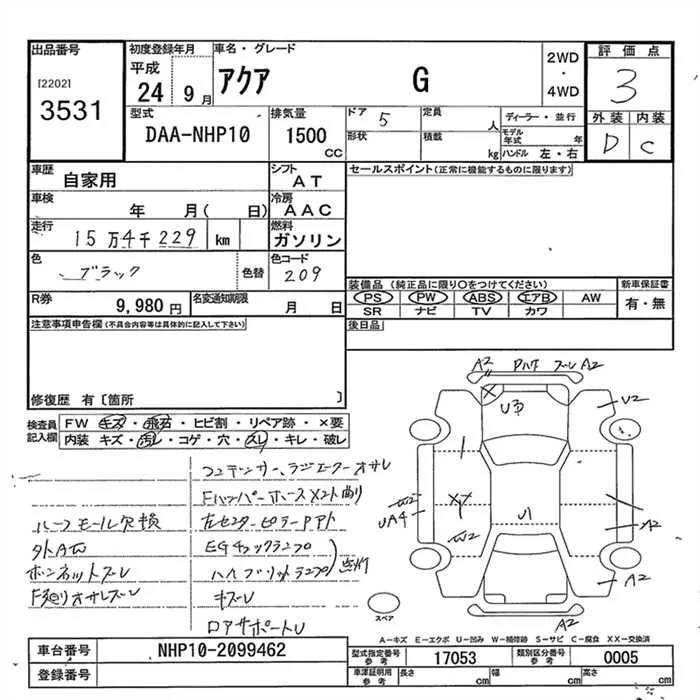 出品番号
[2202]
3531
初度登録年月
平成
24 9月
車名・グレード
アクア G
2WD
・
4WD
評価点
3
外装 内装
D C
型式
DAA-NHP10
排気量
1500
CC
ドア 5
形状
定員
人
積載
kg
ディーラー・並行
モデル
年式 年
ハンドル 左・右
車歴
自家用
シフト
AT
車検
年 月( 日)
冷房
AAC
走行
15万4千229 km
燃料
ガソリン
色
ブラック
色替
色コード
209
R券
9,980 円
名変通知期限
月 日
セールスポイント(正常に機能するものに限ります)
装備品(純正品に限り○をつけてください)
PS PW ABS エアB AW
SR ナビ TV カワ
新車保証書
有・無
後日品
注意事項申告欄(不具合内容等は具体的に記入して下さい)
修復歴 有〔箇所 〕
検査員
記入欄
FW キズ・飛石・ヒビ割・リペア跡・×要
内装 キズ・汚レ・コゲ・穴・スレ・キレ・破レ
コンデンサー、ラジエーターオサレ
Fバンパーホースメント曲り
ルーフモール欠損
左センターピラーPアト
外AW
EGチェックランプ
ボンネットズレ
ハイブリットランプ
点灯
F廻りオサレズレ
キズレ
ロアサポートU
A2
ズレ A2
U3
U2
XX
W2
UA4
W2
U1
A2
A2
A2
スペア
A−キズ E−エクボ U−凹み W−補修跡 S−サビ C−腐食 XX−交換済
車台番号
NHP10-2099462
登録番号
型式指定番号
参考
17053
類別区分番号
参考
0005
車庫証明用
参考
長さ cm
幅 cm
高さ cm